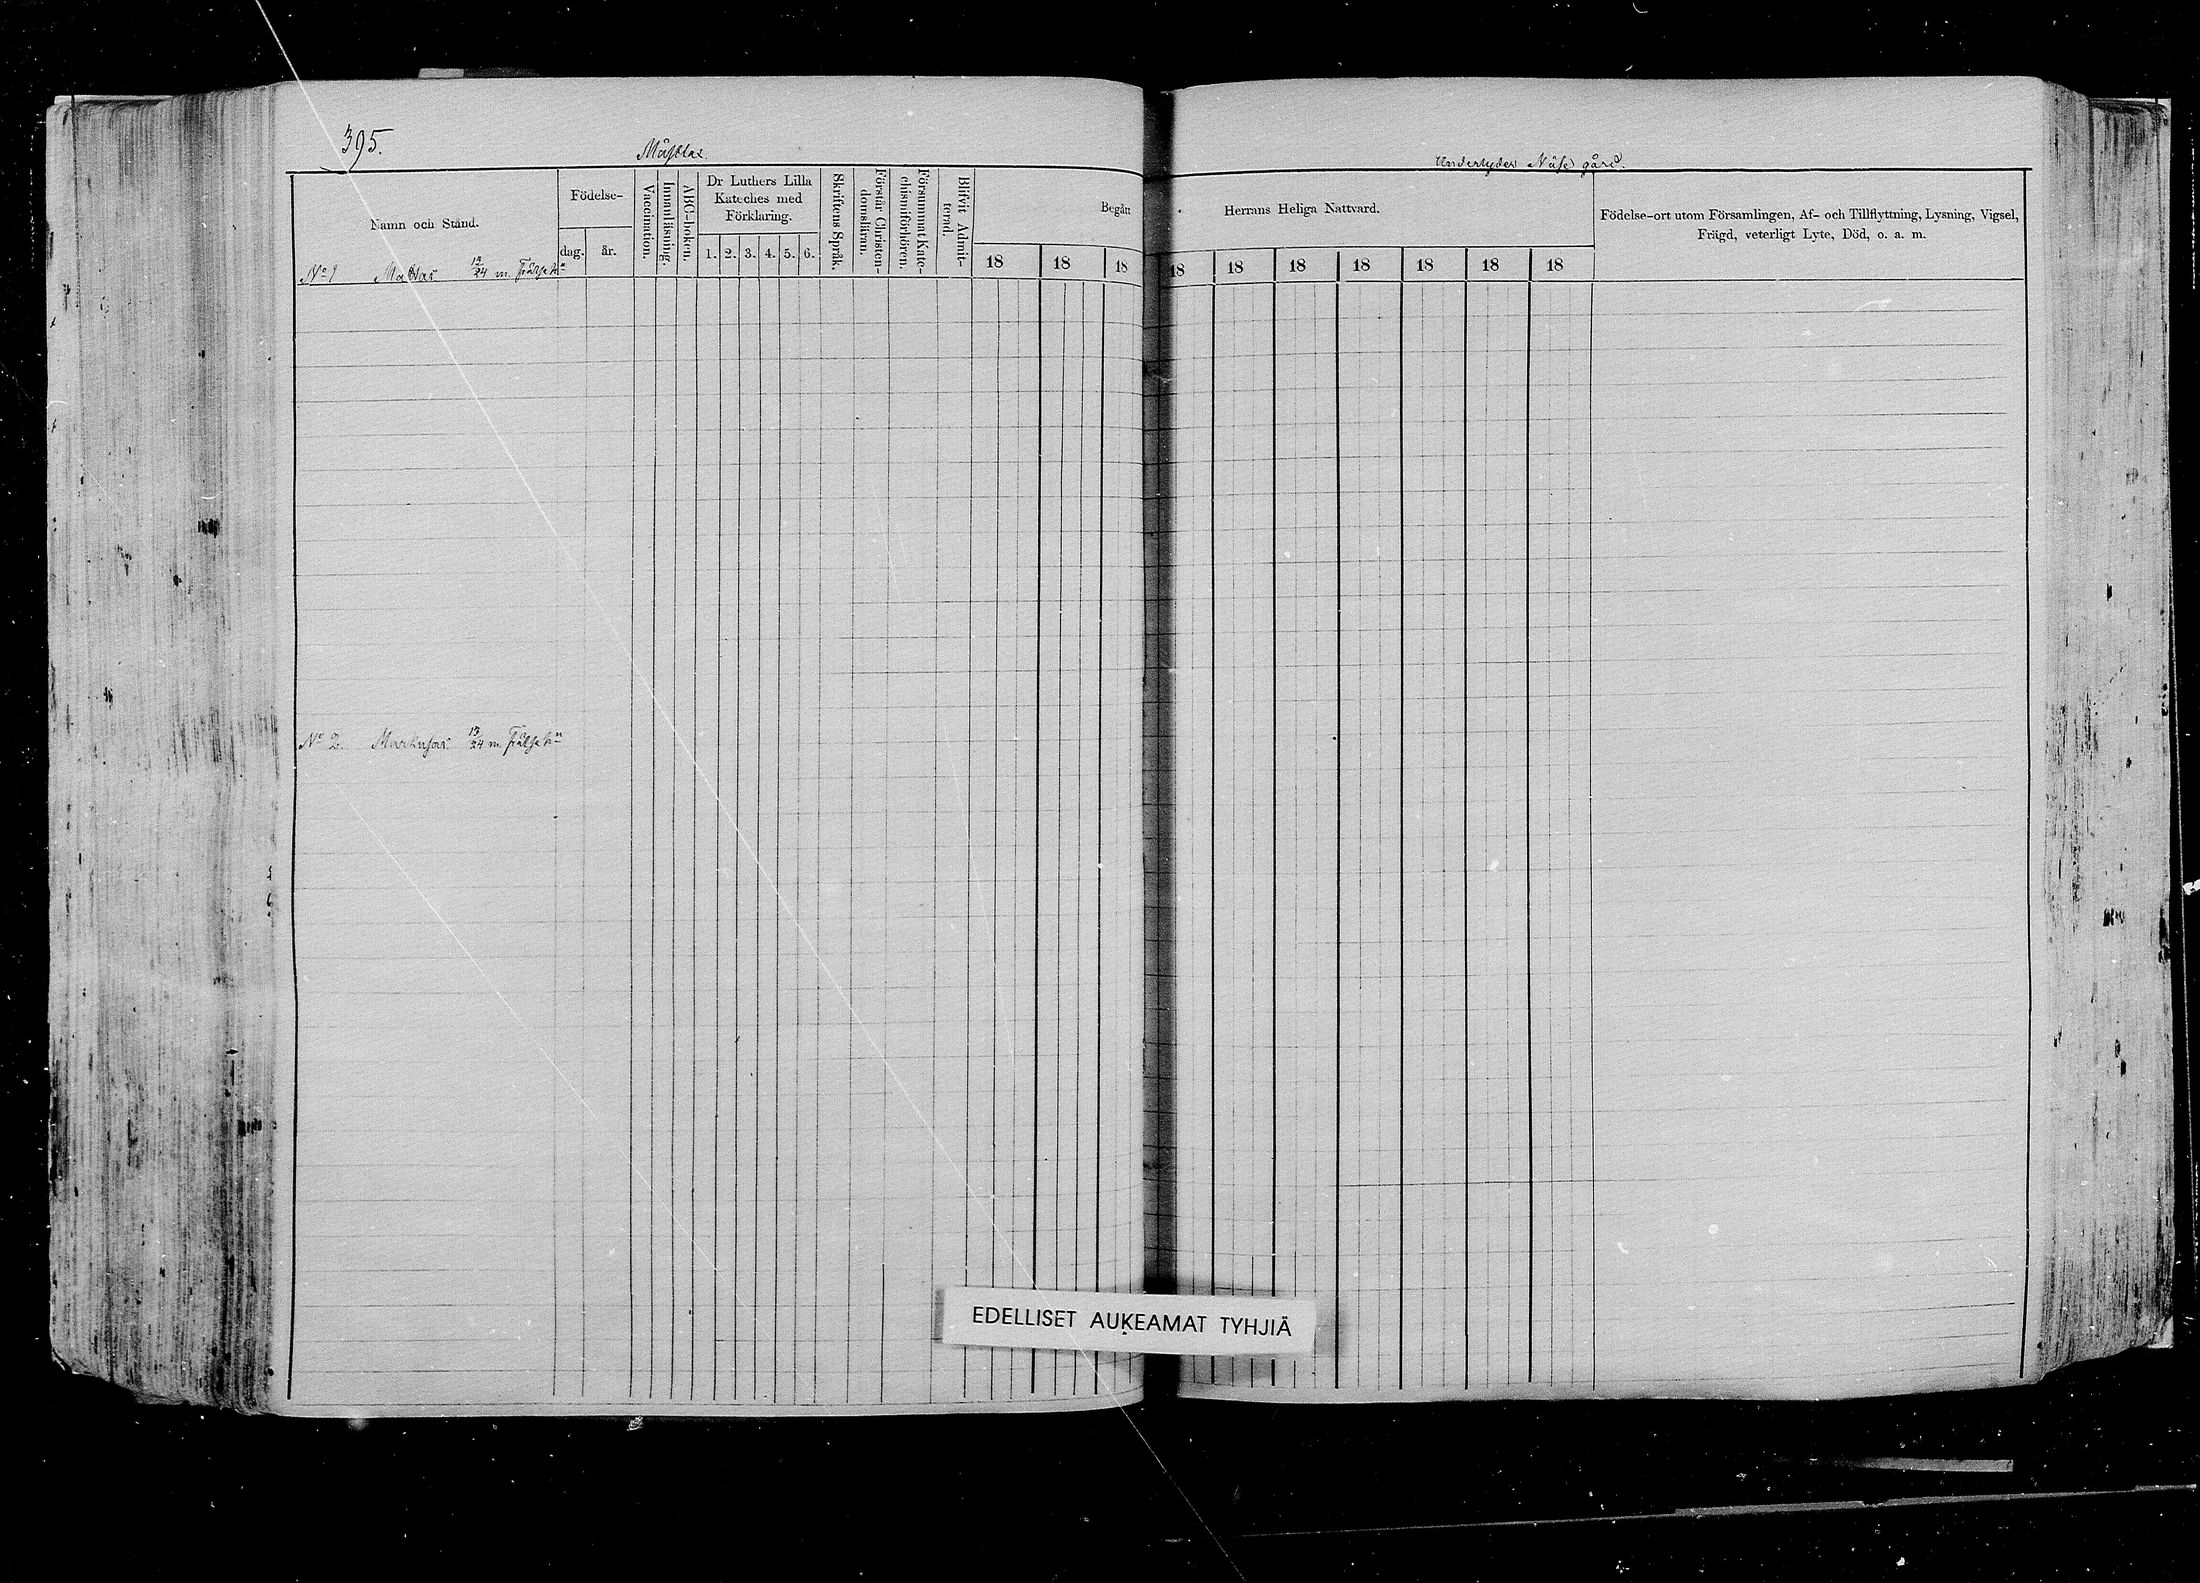 395.
Undertyder Näse gård.
Namn och Stånd.
Födelse-
dag. år.
Vaccination.
Innanläsning.
ABC-boken.
Dr Luthers Lilla
Kateches med
Förklaring.
1. 2. 3. 4. 5. 6.
Skriftens Språk.
Förstår Christen-
domsläran.
Försummat Kate-
chismiförhören.
Blifvit Admit-
terad.
Begått Herrans Heliga Nattvard.
18 18 18 18 18 18 18 18 18 18
Födelse-ort utom Församlingen, Af- och Tillflyttning, Lysning, Vigsel,
Frägd, veterligt Lyte, Död, o. a. m.
No 1 Mattas 13/24 m. Frälse hn
No 2. Markusas 13/24 m. Frälse hn
EDELLISET AUKEAMAT TYHJIÄ